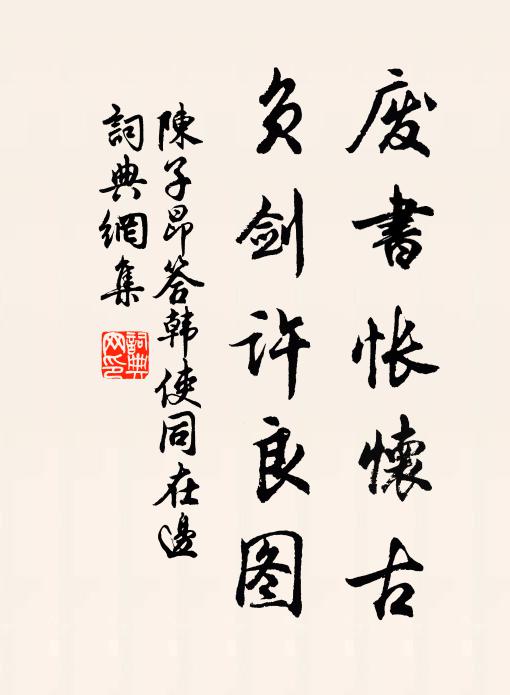 废書怅懷古
负剑许良图
陳子昂答韩使同在邊
詞典網集
詞典网印